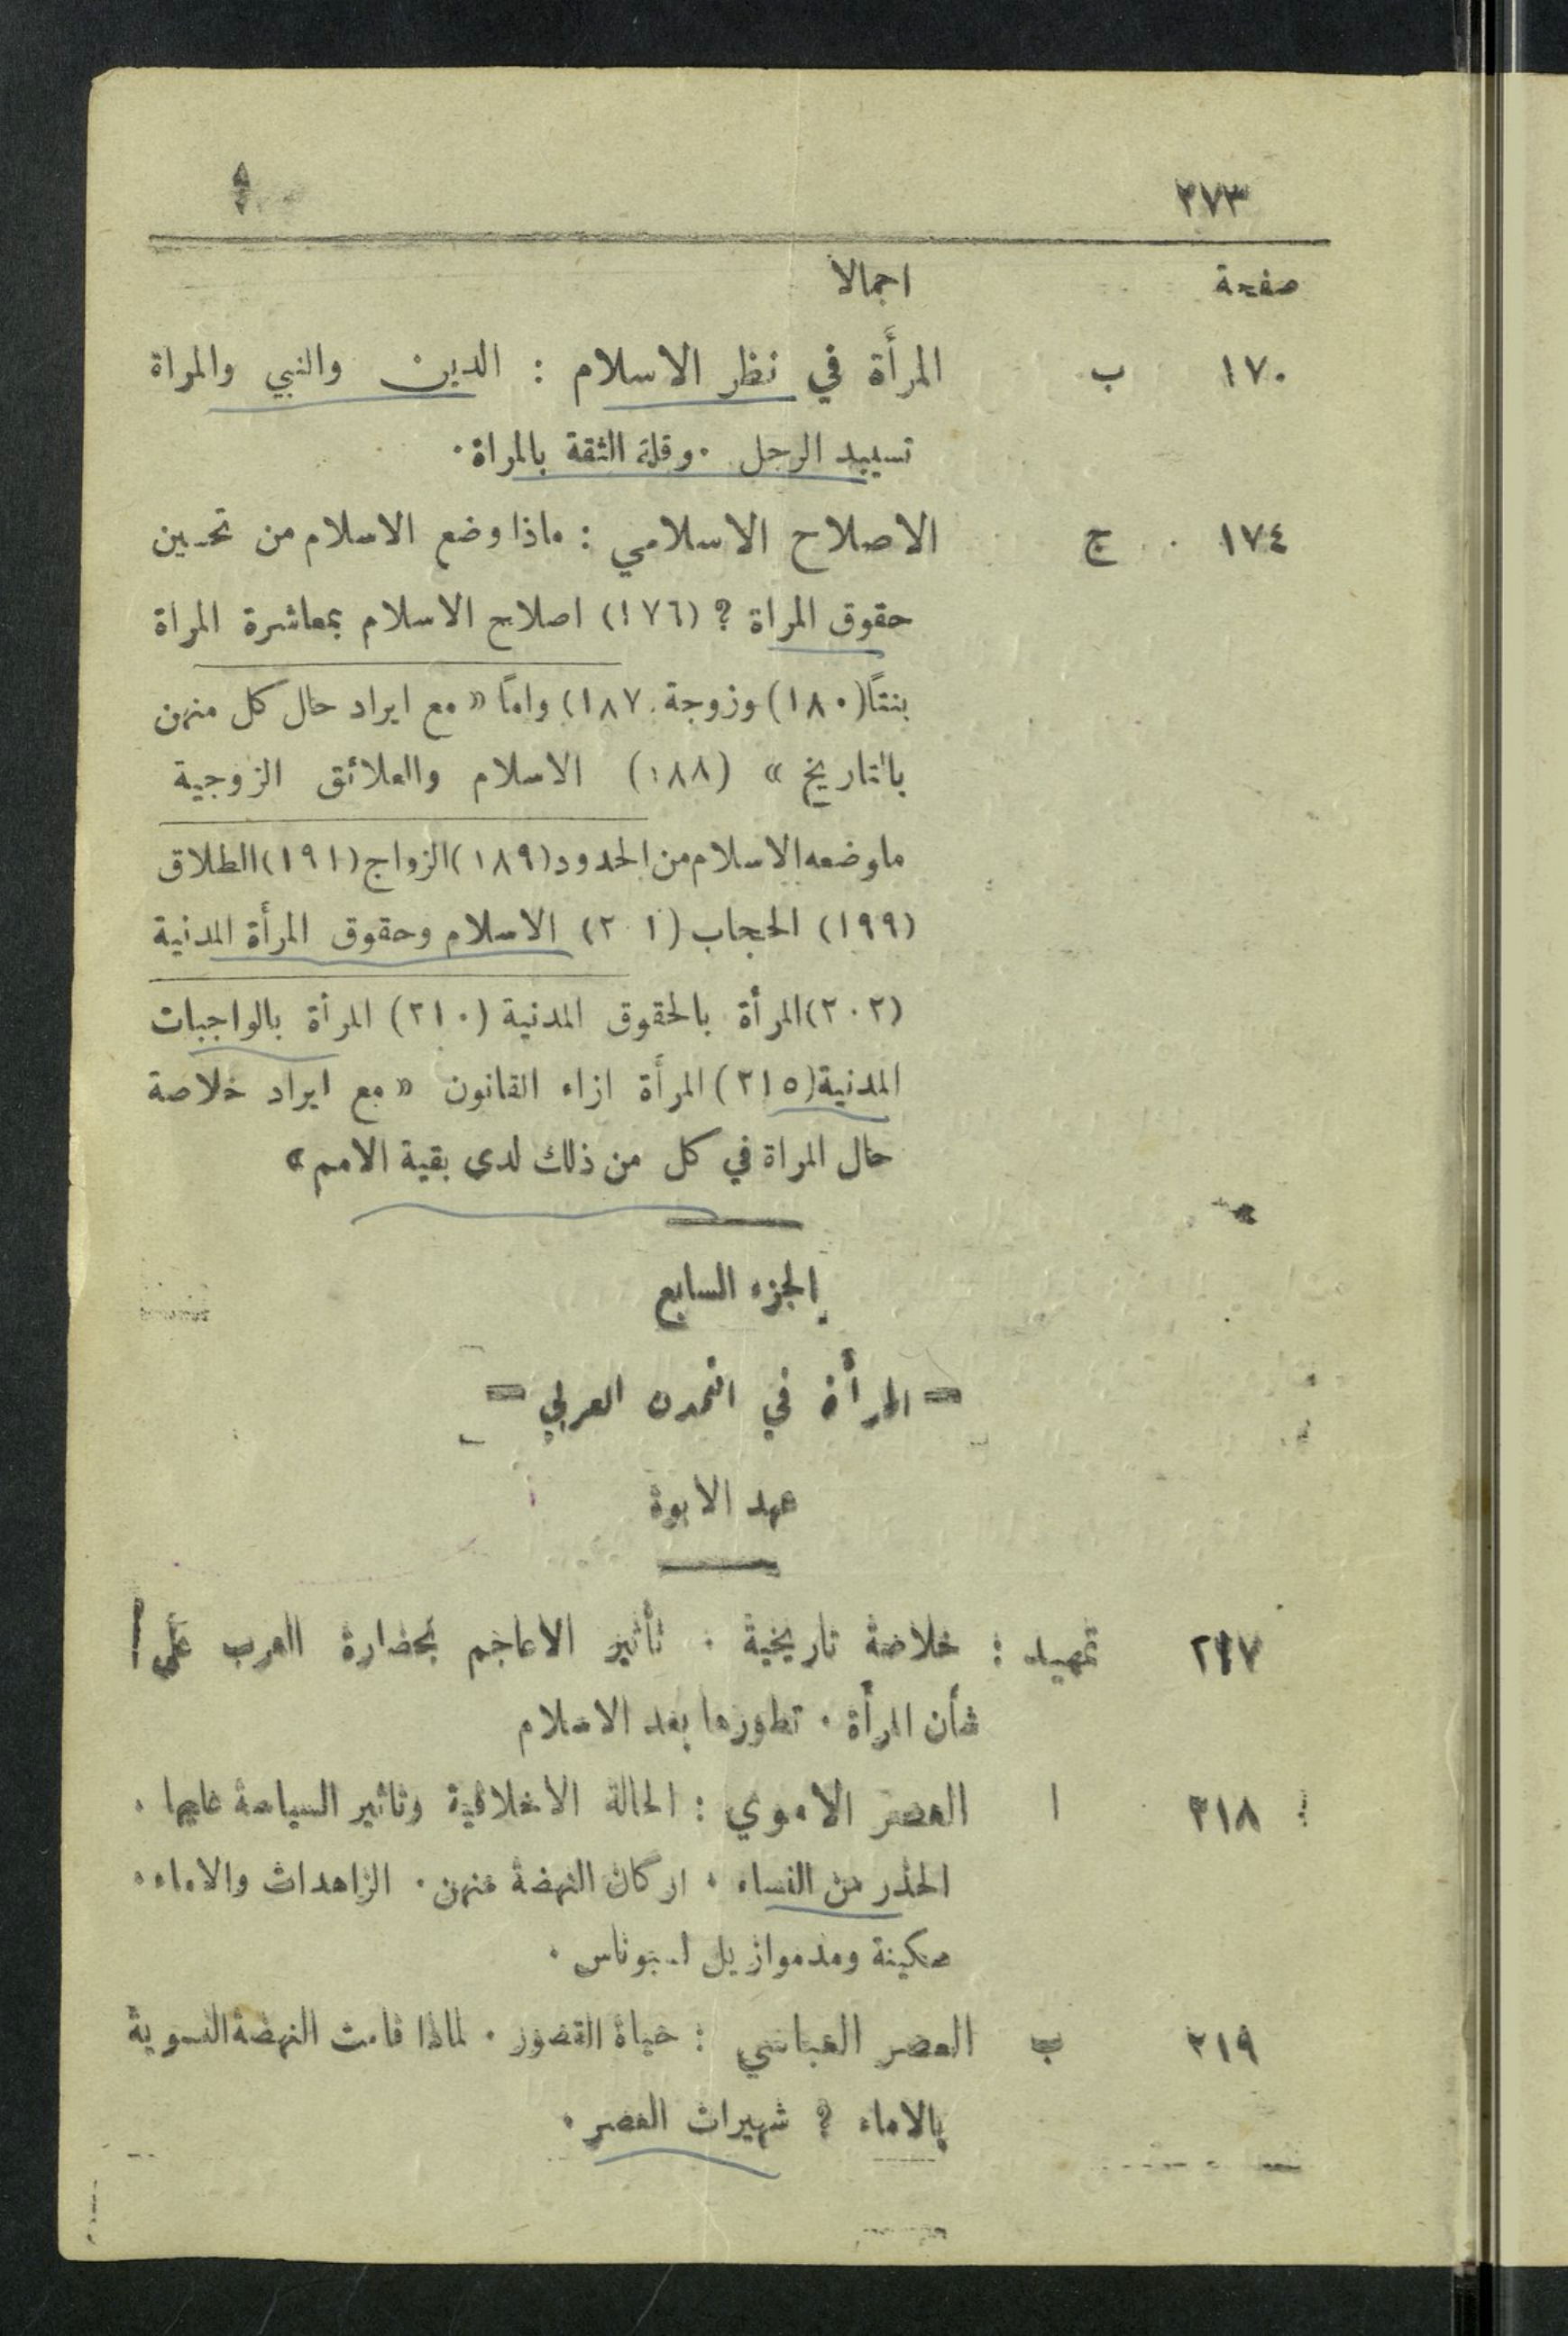 ٢٧٣
صفحة اجمالا
١٧٠ ب المرأة في نظر الاسلام : الدين والنبي والمراة
تسييد الرجل ٠ وقلة الثقة بالمراة ٠
١٧٤ ج الاصلاح الاسلامي : ماذا وضع الاسلام من تحسين
حقوق المراة ؟ (١٧٦) اصلاح الاسلام بمعاشرة المراة
بنتًا (١٨٠) وزوجة ١٨٧) وامًا « مع ايراد حال كل منهن
بالتاريخ » (١٨٨) الاسلام والعلائق الزوجية
ما وضعه الاسلام من الحدود (١٨٩) الزواج (١٩١) الطلاق
(١٩٩) الحجاب (٢٠١) الاسلام وحقوق المرأة المدنية
(٢٠٢) المرأة بالحقوق المدنية (٢١٠) المرأة بالواجبات
المدنية (٢١٥) المرأة ازاء القانون « مع ايراد خلاصة
حال المراة في كل من ذلك لدى بقية الامم »
الجزء السابع
= المرأة في التمدن العربي =
عهد الابوة
٢١٧ تمهيد : خلاصة تاريخية ٠ تأثير الاعاجم بحضارة العرب على
شأن المرأة ٠ تطورها بعد الاسلام
٢١٨ ا العصر الاموي : الحالة الاخلاقية وتاثير السياسة عليها ٠
الحذر من النساء ٠ اركان النهضة منهن ٠ الزاهدات والاماء ٠
سكينة ومدموازيل لسبوناس ٠
٢١٩ ب العصر العباسي : حياة القصور ٠ لماذا قامت النهضة النسوية
بالاماء ؟ شهيرات العصر ٠